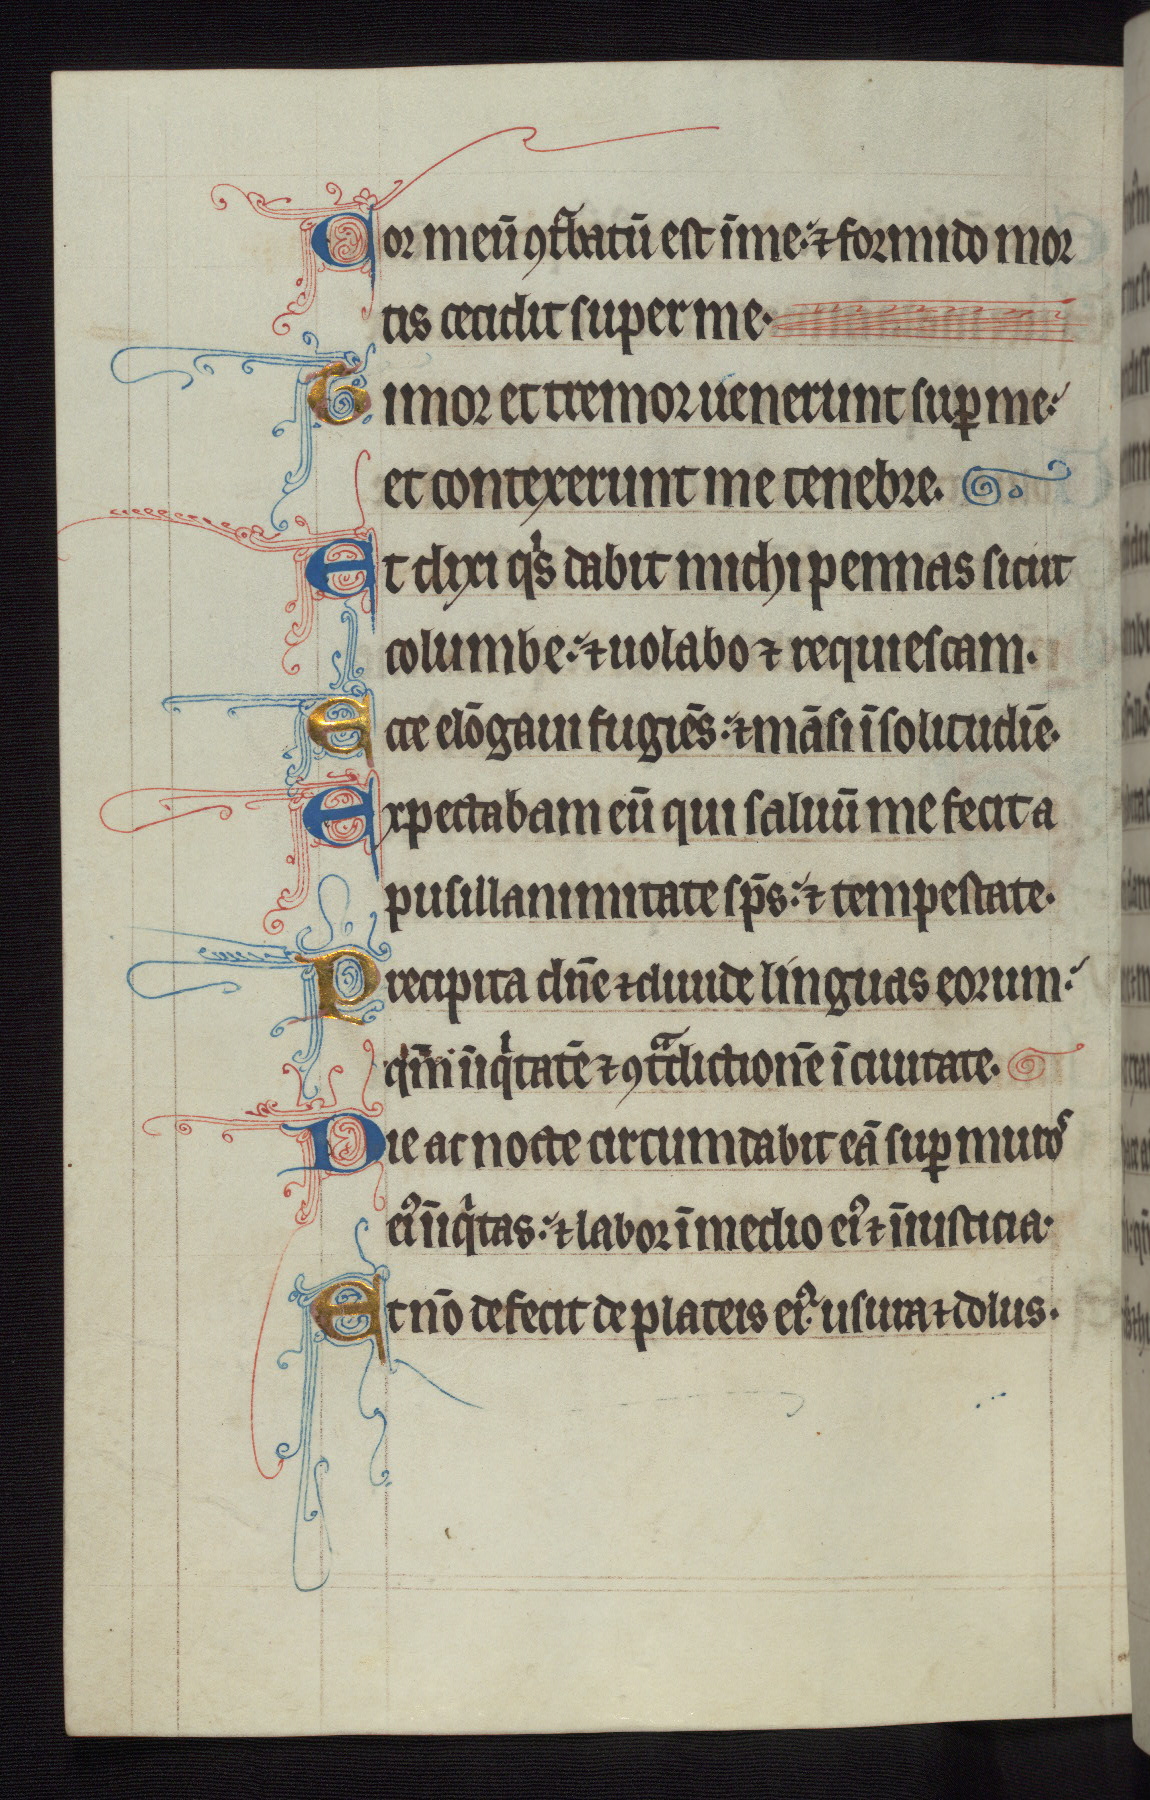 Cor meū ꝯt͛batū est īme: ⁊ formido mor
tis cecidit super me.
Timor et tremor uenerunt suꝑ me:
et contexerunt me tenebre.
Et dixi qͥs dabit michi pennas sicut
columbe: ⁊ uolabo ⁊ requiescam.
Ecce elōgaui fugiēs: ⁊ māsi ī solitudīe.
Expectabam eū qui saluū me fecit a
pusillanimitate sp̄s: ⁊ tempestate.
Precipita dn̄e ⁊ diuide linguas eorum:
qm̄ īiqͥtatē ⁊ ꝯtᵃdictionē ī ciuitate.
Die ac nocte circumdabit eā suꝑ muroˢ
eiꝰ īiqͥtas: ⁊ labor ī medio eiꝰ ⁊ īiusticia.
Et nō defecit de plateis eiꝰ. usura ⁊ dolus.